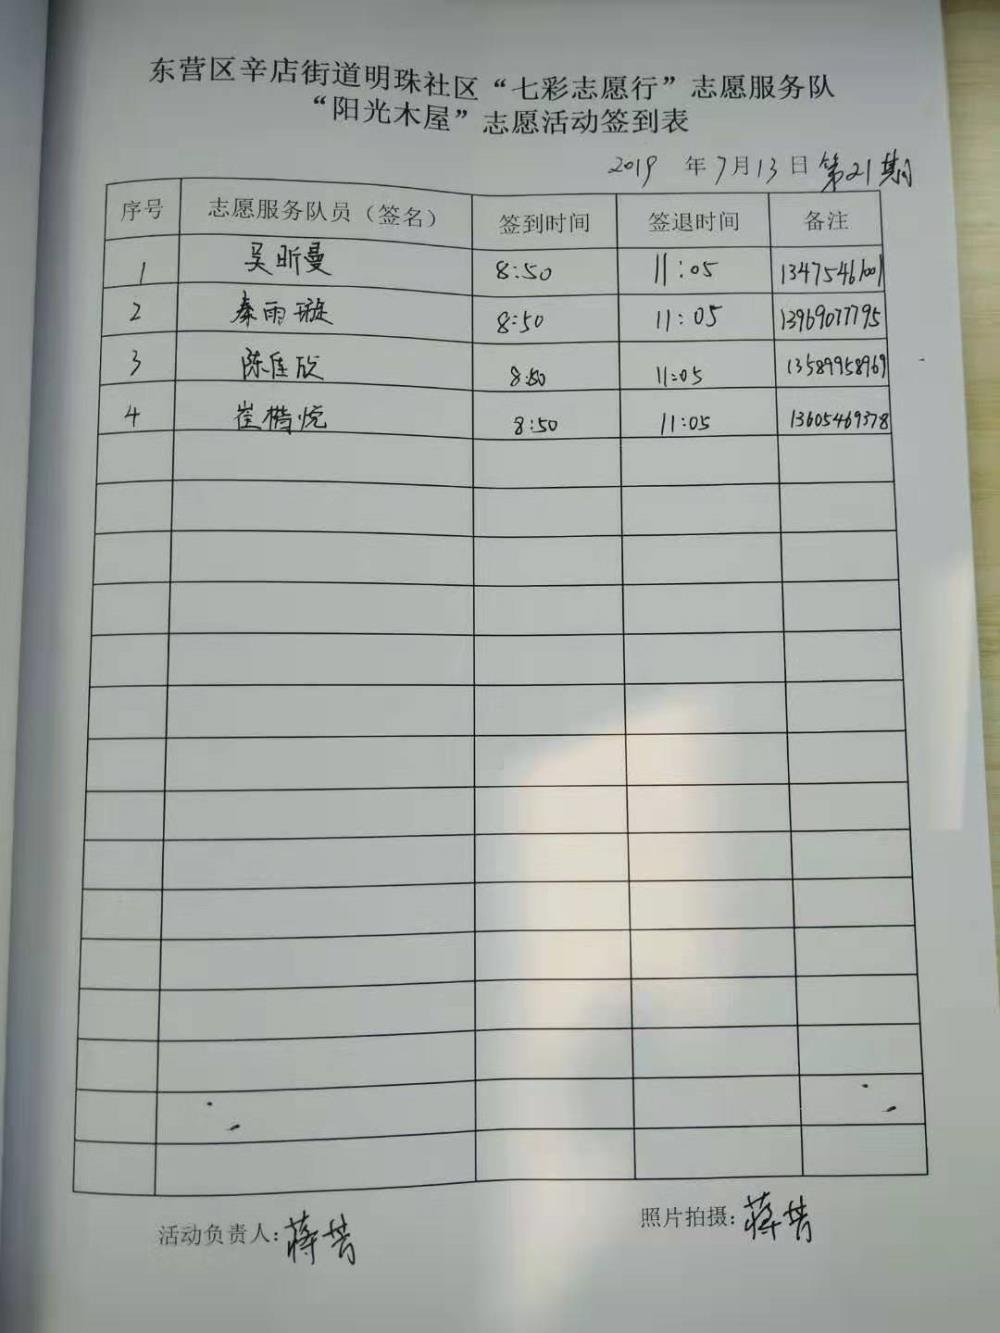 东营区辛店街道明珠社区“七彩志愿行”志愿服务队
“阳光木屋”志愿活动签到表
2019 年 7 月 13 日 第21期
序号 志愿服务队员（签名） 签到时间 签退时间 备注
1 吴昕曼 8:50 11:05 13475461001
2 秦雨璇 8:50 11:05 13969077795
3 陈佳欣 8:50 11:05 13589958969
4 崔楷悦 8:50 11:05 13605469378
活动负责人: 蒋芳
照片拍摄: 蒋芳